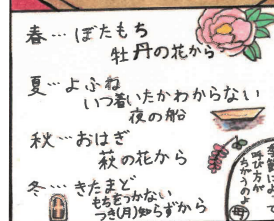 春…ぼたもち
牡丹の花から
夏…よふね
いつ着いたかわからない
夜の船
秋…おはぎ
萩の花から
冬…きたまど
もちをつかない
つき(月)知らずから
呼び方が
ちがうのよ
母